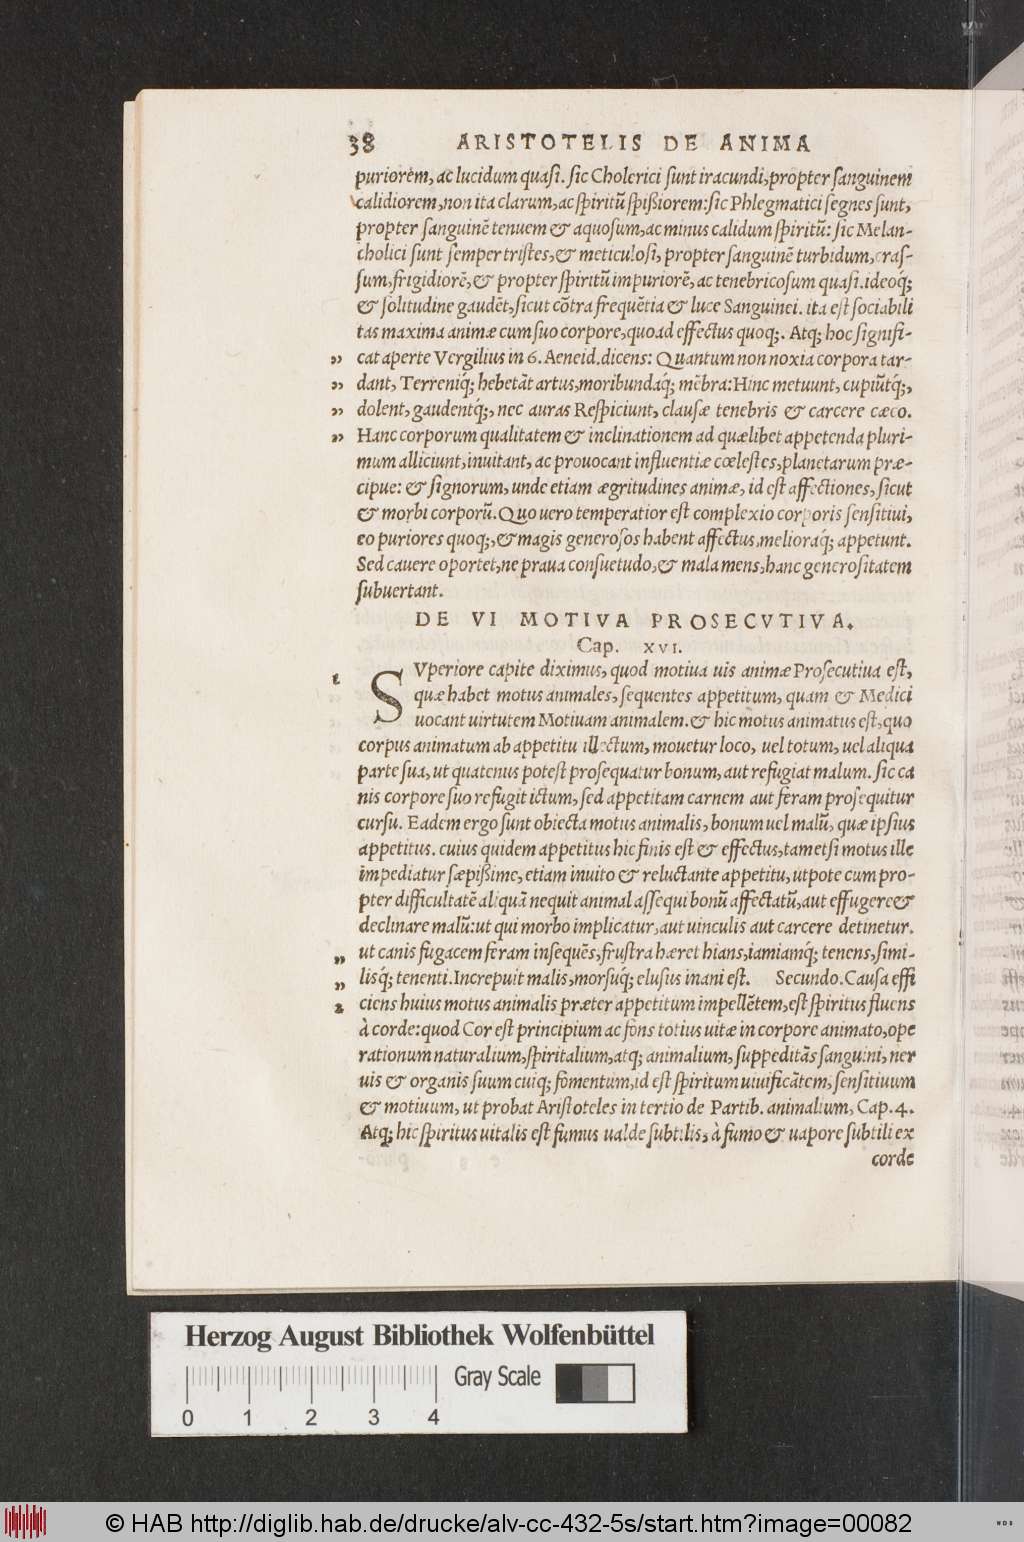 38 ARISTOTELIS DE ANIMA
puriorem, ac lucidum quasi. sic Cholerici sunt iracundi, propter sanguinem
calidiorem, non ita clarum, ac spiritũ spißiorem: sic Phlegmatici segnes sunt,
propter sanguinẽ tenuem & aquosum, ac minus calidum spiritũ: sic Melan-
cholici sunt semper tristes, & meticulosi, propter sanguinẽ turbidum, cras-
sum, frigidiorẽ, & propter spiritũ impuriorẽ, ac tenebricosum quasi. ideoq́;
& solitudine gaudẽt, sicut cõtra frequẽtia & luce Sanguinei. ita est sociabili
tas maxima animæ cum suo corpore, quo ad effectus quoq;. Atq; hoc signifi-
„ cat aperte Vergilius in 6. Aeneid. dicens: Quantum non noxia corpora tar-
„ dant, Terreniq́; hebetãt artus, moribundaq́; mẽbra: Hinc metuunt, cupiũtq́;,
„ dolent, gaudentq́;, nec auras Respiciunt, clausæ tenebris & carcere cæco.
„ Hanc corporum qualitatem & inclinationem ad quælibet appetenda pluri-
mum alliciunt, inuitant, ac prouocant influentiæ cœlestes, planetarum præ-
cipue: & signorum, unde etiam ægritudines animæ, id est affectiones, sicut
& morbi corporũ. Quo uero temperatior est complexio corporis sensitiui,
eo puriores quoq;, & magis generosos habent affectus, melioraq́; appetunt.
Sed cauere oportet, ne praua consuetudo, & mala mens, hanc generositatem
subuertant.
DE VI MOTIVA PROSECVTIVA.
Cap. XVI.
1 SVperiore capite diximus, quod motiua uis animæ Prosecutiua est,
quæ habet motus animales, sequentes appetitum, quam & Medici
uocant uirtutem Motiuam animalem. & hic motus animatus est, quo
corpus animatum ab appetitu illectum, mouetur loco, uel totum, uel aliqua
parte sua, ut quatenus potest prosequatur bonum, aut refugiat malum. Sic ca
nis corpore suo refugit ictum, sed appetitam carnem aut feram prosequitur
cursu. Eadem ergo sunt obiecta motus animalis, bonum uel malũ, quæ ipsius
appetitus. cuius quidem appetitus hic finis est & effectus, tametsi motus ille
impediatur sæpißime, etiam inuito & reluctante appetitu, utpote cum pro-
pter difficultatẽ aliquã nequit animal assequi bonũ affectatũ, aut effugere &
declinare malũ: ut qui morbo implicatur, aut uinculis aut carcere detinetur.
„ ut canis fugacem feram insequẽs, frustra hæret hians, iamiamq́; tenens, simi-
„ lisq́; tenenti. Increpuit malis, morsuq́; elusus inani est. Secundo. Causa effi
2 ciens huius motus animalis præter appetitum impellẽtem, est spiritus fluens
à corde: quod Cor est principium ac fons totius uitæ in corpore animato, ope
rationum naturalium, spiritalium, atq; animalium, suppeditãs sanguini, ner
uis & organis suum cuiq; fomentum, id est spiritum uiuificãtem, sensitiuum
& motiuum, ut probat Aristoteles in tertio de Partib. animalium, Cap. 4.
Atq; hic spiritus uitalis est fumus ualde subtilis, à fumo & uapore subtili ex
corde
Herzog August Bibliothek Wolfenbüttel
Gray Scale
0 1 2 3 4
© HAB http://diglib.hab.de/drucke/alv-cc-432-5s/start.htm?image=00082